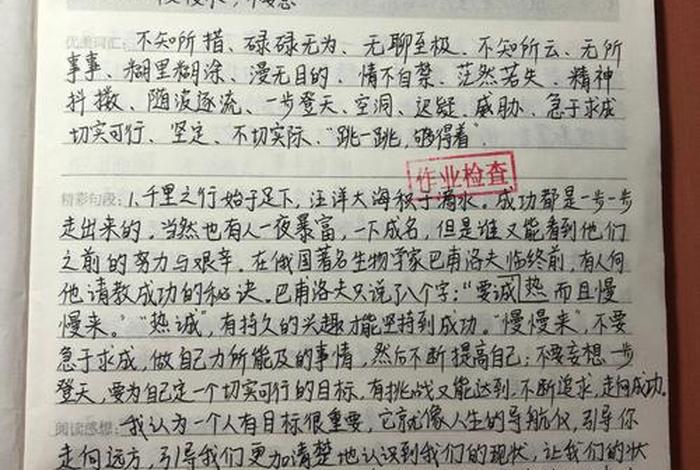 优美词汇: 不知所措、碌碌无为、无聊至极、不知所云、无所
事事、糊里糊涂、漫无目的、情不自禁、茫然若失、精神
抖擞、随波逐流、一步登天、空洞、迟疑、威胁、急于求成
切实可行、坚定、不切实际、"跳一跳,够得着".
作业检查
精彩句段: 1.千里之行始于足下,汪洋大海积于滴水。成功都是一步一步
走出来的,当然也有人一夜暴富,一下成名,但是谁又能看到他们
之前的努力与艰辛。在俄国著名生物学家巴甫洛夫临终前,有人向
他请教成功的秘诀。巴甫洛夫只说了八个字:"要诚热而且慢
慢来。""热诚",有持久的兴趣才能坚持到成功。"慢慢来",不要
急于求成,做自己力所能及的事情,然后不断提高自己;不要妄想一步
登天,要为自己定一个切实可行的目标,有挑战又能达到,不断追求,走向成功。
阅读感想: 我认为一个人有目标很重要,它就像人生的导航仪,引导你
走向远方,引导我们更加清楚地认识到我们的现状,让我们的状